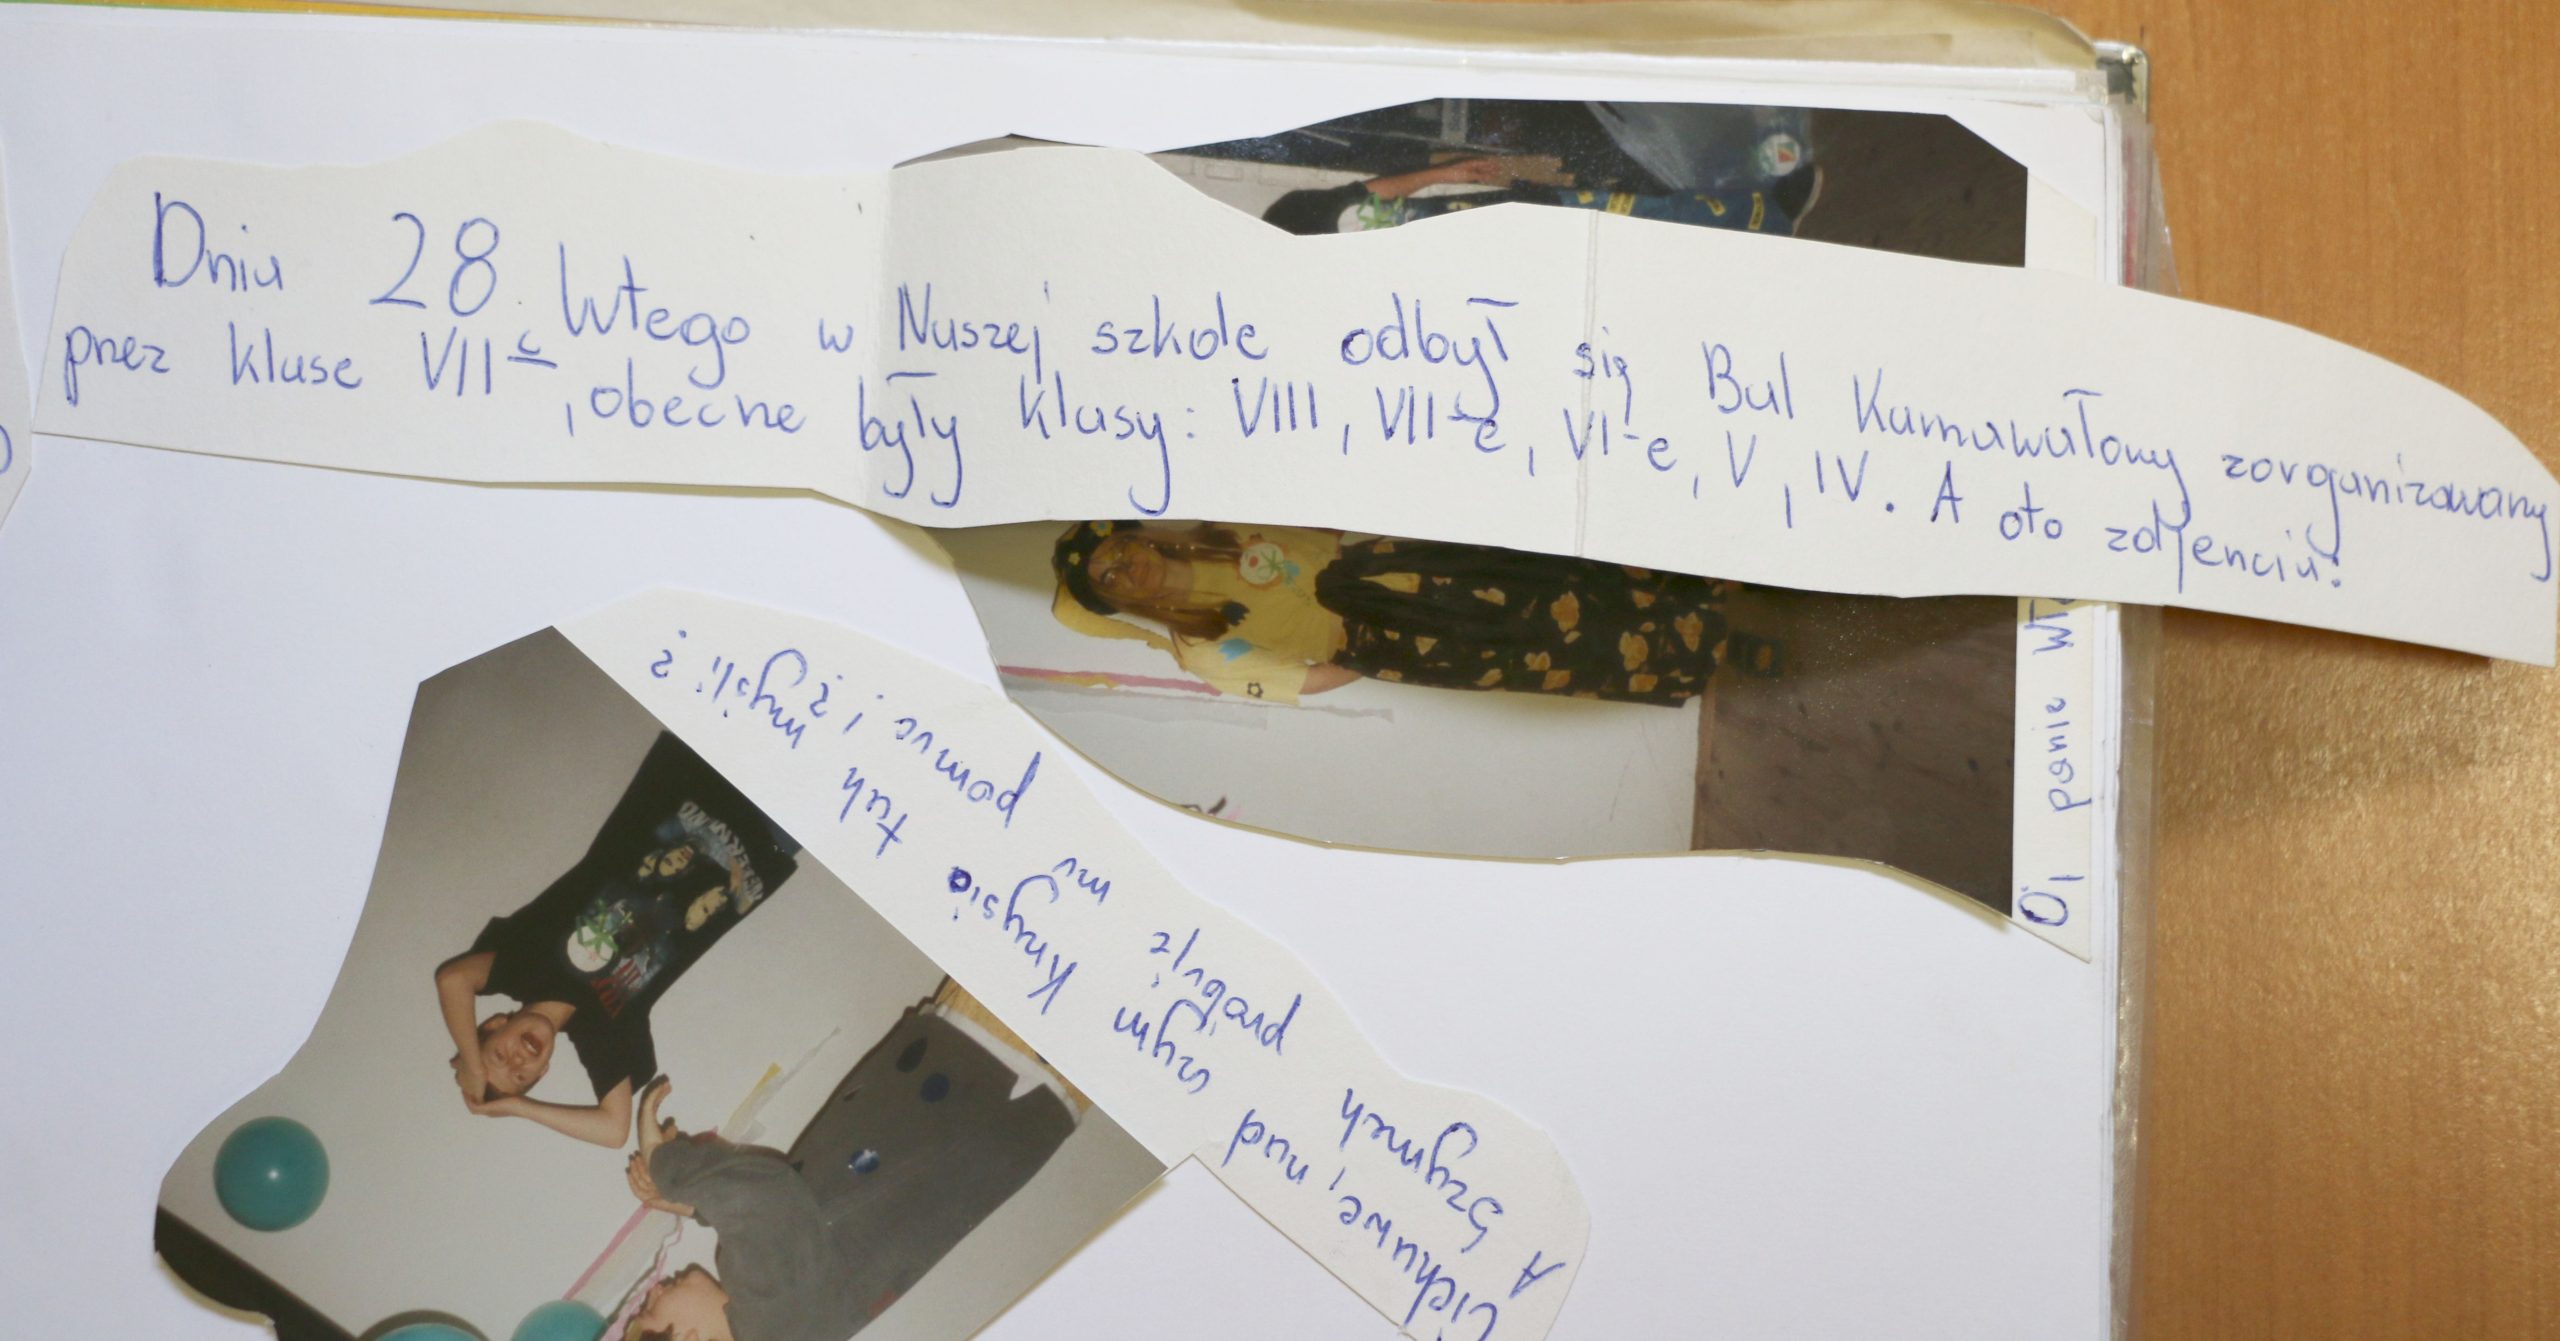 Dnia 28 lutego w Naszej szkole odbył się Bal Karnawałowy zorganizowany
przez klase VII c, obecne były klasy: VIII, VII-c, VI-c, V, IV. A oto zdjencia:
Oj panie
Ciekawe, nad czym Krzysio tak myśli?
A Szymek próbuje mu pomuc i ?